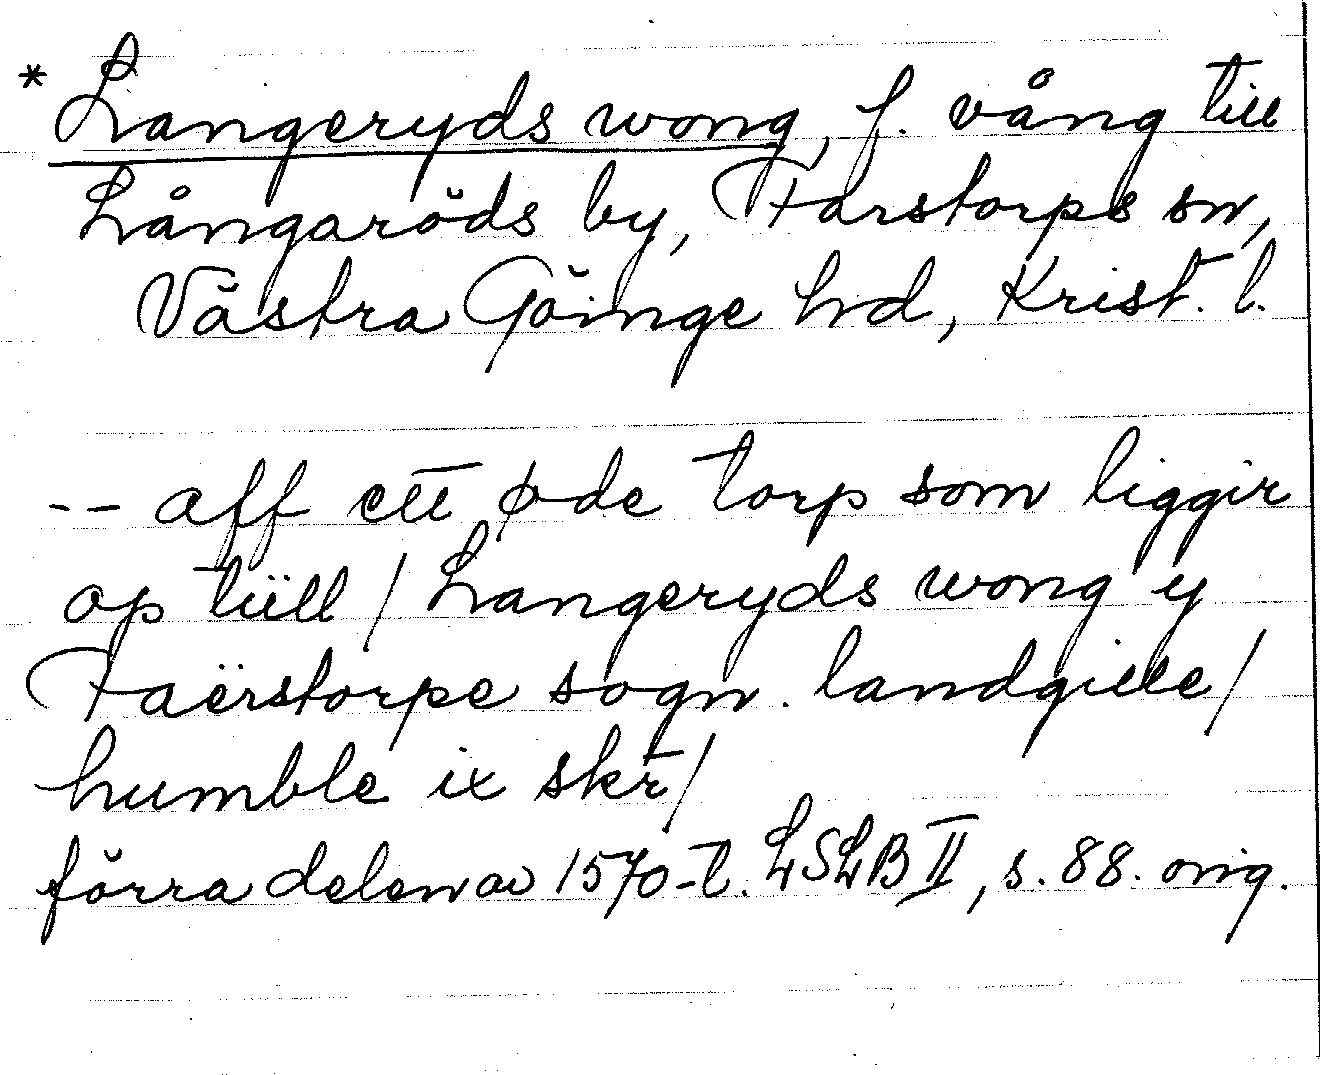 * Langeryds wong, f. vång till
Långaröds by, Farstorps sn,
Västra Göinge hd, Krist. l.
-- aff ett øde torp som liggir
op tiill / Langeryds wong y
Faërstorpe sogn. landgille /
humble ix skr /
förra delen av 1570-t. LSLB II, s. 88. orig.